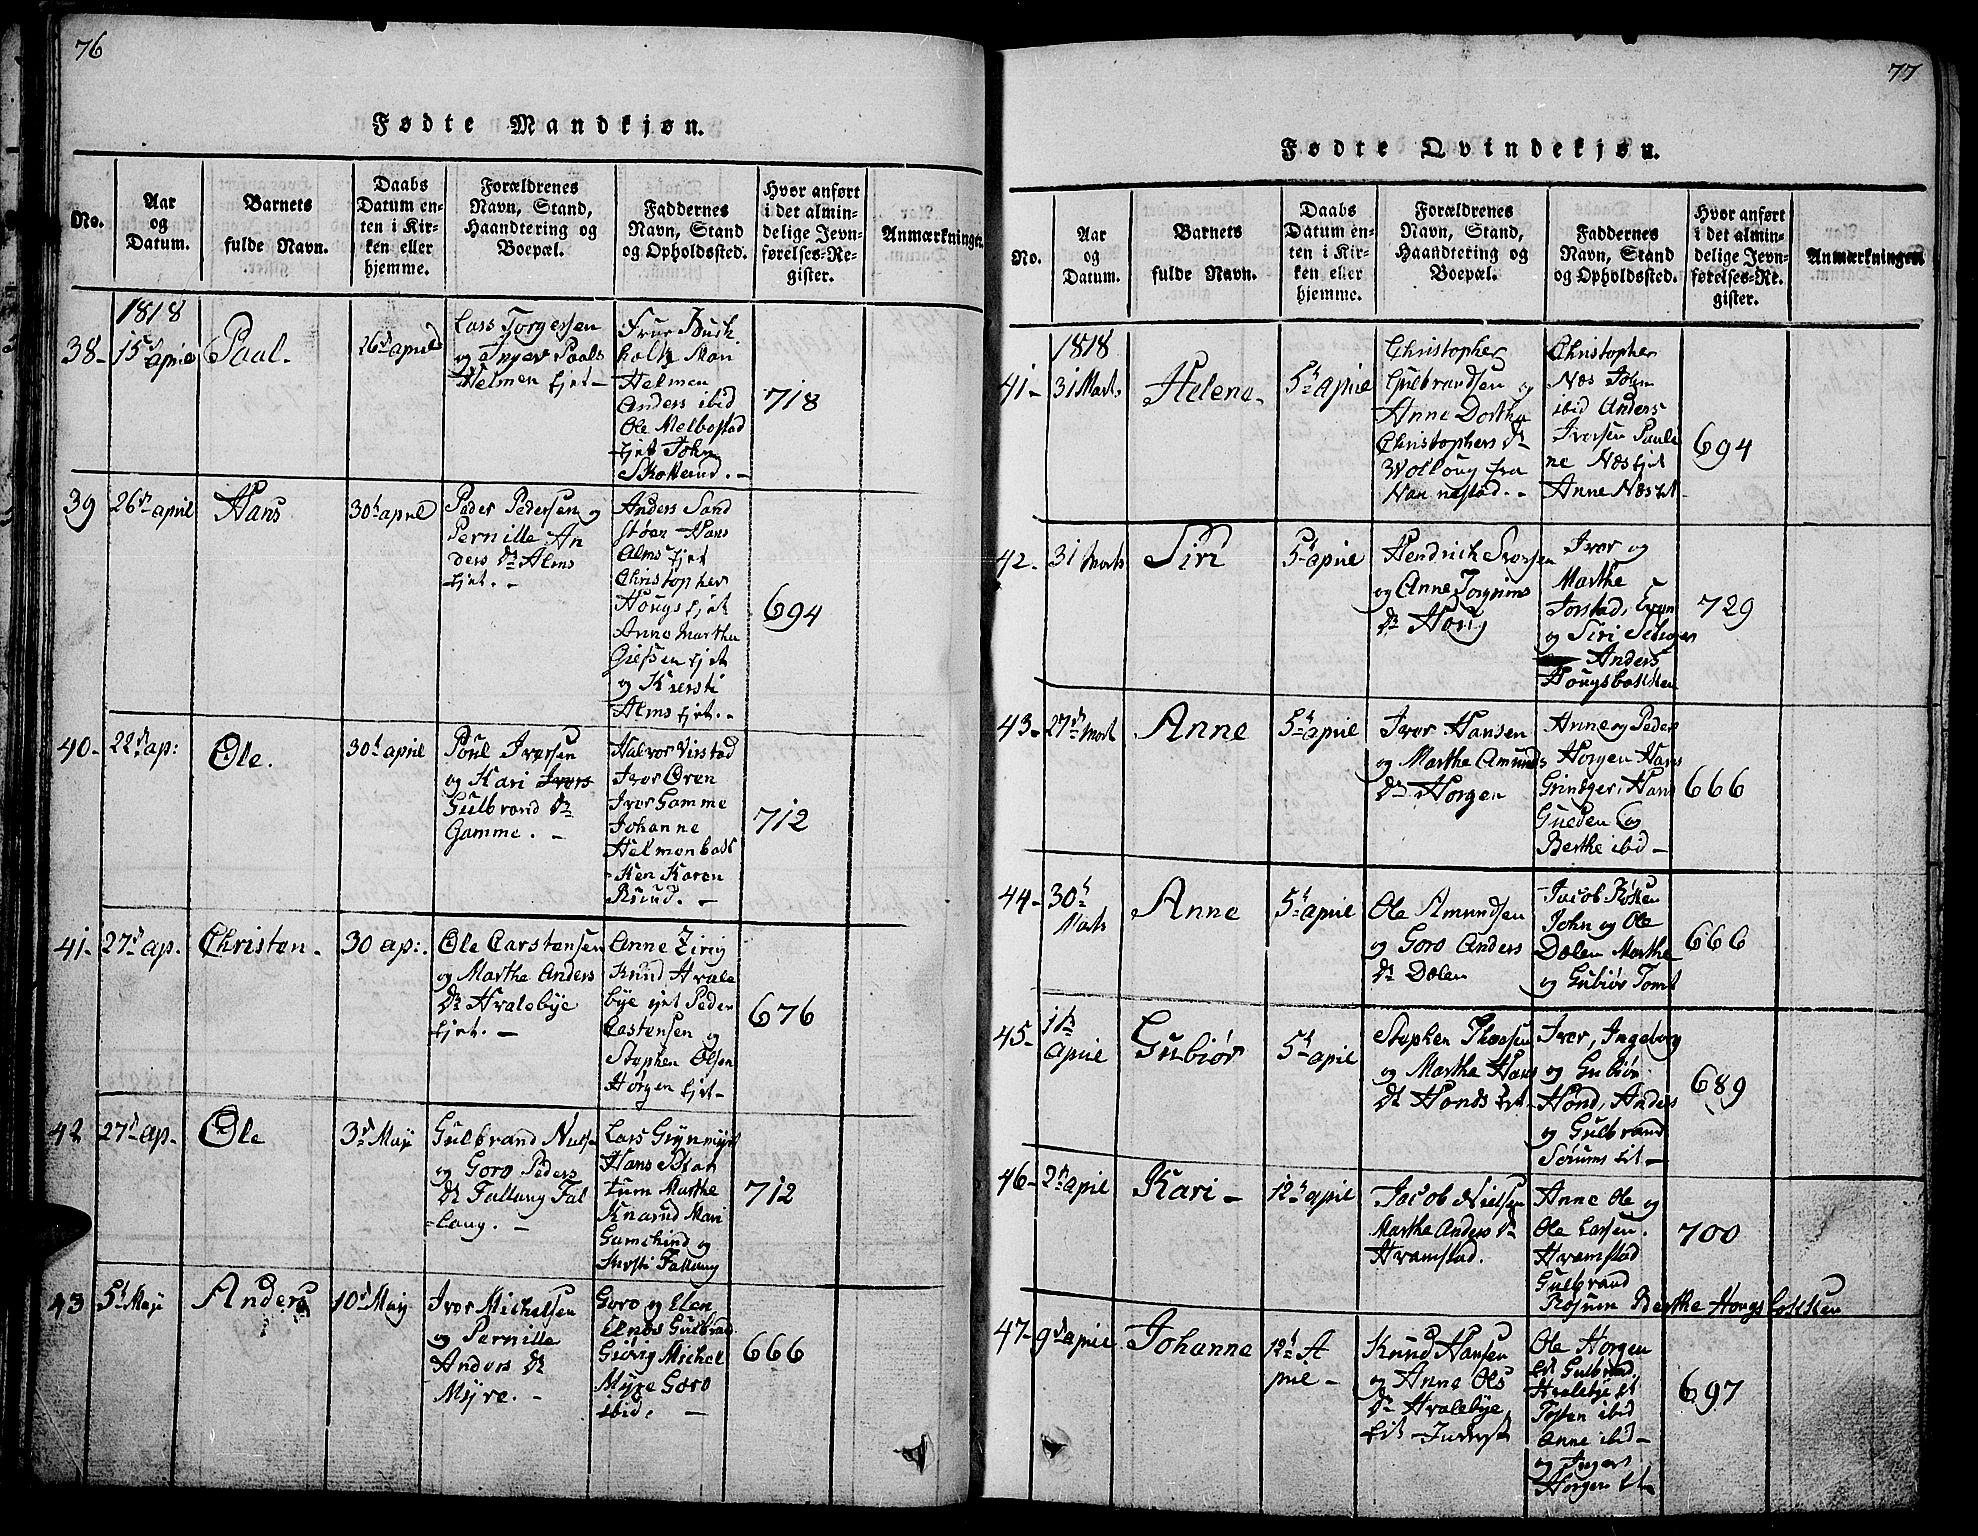 76
Fødte Mandkjøn.
No.
Aar
og
Datum.
Barnets
fulde Navn.
Daabs
Datum en-
ten i Kir-
ken eller
hjemme.
Forældrenes
Navn, Stand,
Haandtering og
Boepæl.
Faddernes
Navn, Stand
og Opholdssted.
Hvor anført
i det almin-
delige Jevn-
førelses-Re-
gister.
Anmærkninger.
38-
1818
15d april
Paal.
26d april
Lars Torgersen
og Inger Paals
Helmen Ejet-
Frue Buck
holtz Mari
Helmen
Anders ibid
Ole Melbostad
Ejet John
Skotterud.-
718
39
26d april
Hans
30h april
Peder Pedersen og
Pernille An
ders dr Alms
Ejet.-
Anders Sand
støer Hans
Alms Ejet
Christopher
Hougs Ejet
Anne Marthe
Ejet
og Kiersti
Alms Ejet.-
694
40-
22d ap:
Ole.
30h april
Poul Iversen
og Kari Ivers
Gulbrand dr
Gamme. -
Halvor Virstad
Iver Øren
Iver Gamme
Johanne
Helmenbak
-ken Karen
Rsiud. -
712
41-
27d ap.
Christen-
30 ap:
Ole Carstensen
og Marthe Anders
dr Hvalebye
Ejet. -
Anne
Knud Hvale
bye Ejet Peder
Castensen og
Stephen Olsen
Horgen Ejet-
676
42
27d ap.
Ole
3d May
Gulbrand Niels-
og Goro Peders
dr Fallang Fal
-lang. -
Lars Grynmyr
Hans
tum Marthe
Knarud Mari
og
Kirsti Fallang
712
43
5h May
Anders
10d May
Iver Michelsen
og Pernille
Anders dr
Myre. -
Goro og Elen
Elnes Gulbrand
Michel
Myre Goro
ibid. -
666
77
Fødte Qvindekjøn.
No.
Aar
og
Datum.
Barnets
fulde Navn.
Daabs
Datum en-
ten i Kir-
ken eller
hjemme.
Forældrenes
Navn, Stand,
Haandtering og
Boepæl.
Faddernes
Navn, Stand
og Opholdssted.
Hvor anført
i det almin-
delige Jevn-
førelses-Re-
gister.
Anmærkninger
41-
1818
31 Marts
Helene-
5h april
Christopher
Gulbrandsen og
Anne Dorthe
Christophers dr
Wolloug fra
Nannestad. -
Christopher
Næs John
ibid Anders
Iversen Pauli
ne Næs Ejet
Anne Næs Et
694
42-
31 Marts
Siri
5h april
Hendrich Iversen
og Anne Torgrims
dr Houg
Iver og
Marthe
Torstad, Even
og Siri
Anders
Hougsbakken
729
43-
27d Mart
Anne
5h april
Iver Hansen
og Marthe Amunds
dr Horgen
Anne og Peder
Horgen Hans
Grinager, Hans
og
Berthe ibid -
666
44-
30h
Marts
Anne
5h april
Ole Amundsen
og Goro Anders
dr Dølen
Jacob
John og Ole
Dølen Marthe
og Gubiør Tomt
666
45-
1ste
april
Gubiør
5h april
Stephen
og Marthe Hans
dr Honds Et-
Iver, Ingeborg
og Gubiør
Hond, Anders
og Gulbrand
Sørums Et-
689
46-
2d april
Kari -
12h april
Jacob Nielsen
Marthe Anders dr
Hvamstad.
Anne Ole og
Ole Larsen.
Hvamstad
Gulbrand
Røsum Berthe Hougsbakken
700
47-
9d april
Johanne
12h A
pril -
Knud Hansen
og Anne Ols
dr Hvalebye
Eit
Ole Horgen
Et Gulbrand
Hvalebye Et
Tosten ibid
Anne ibid-
og Ingert
Horgen Et-
697